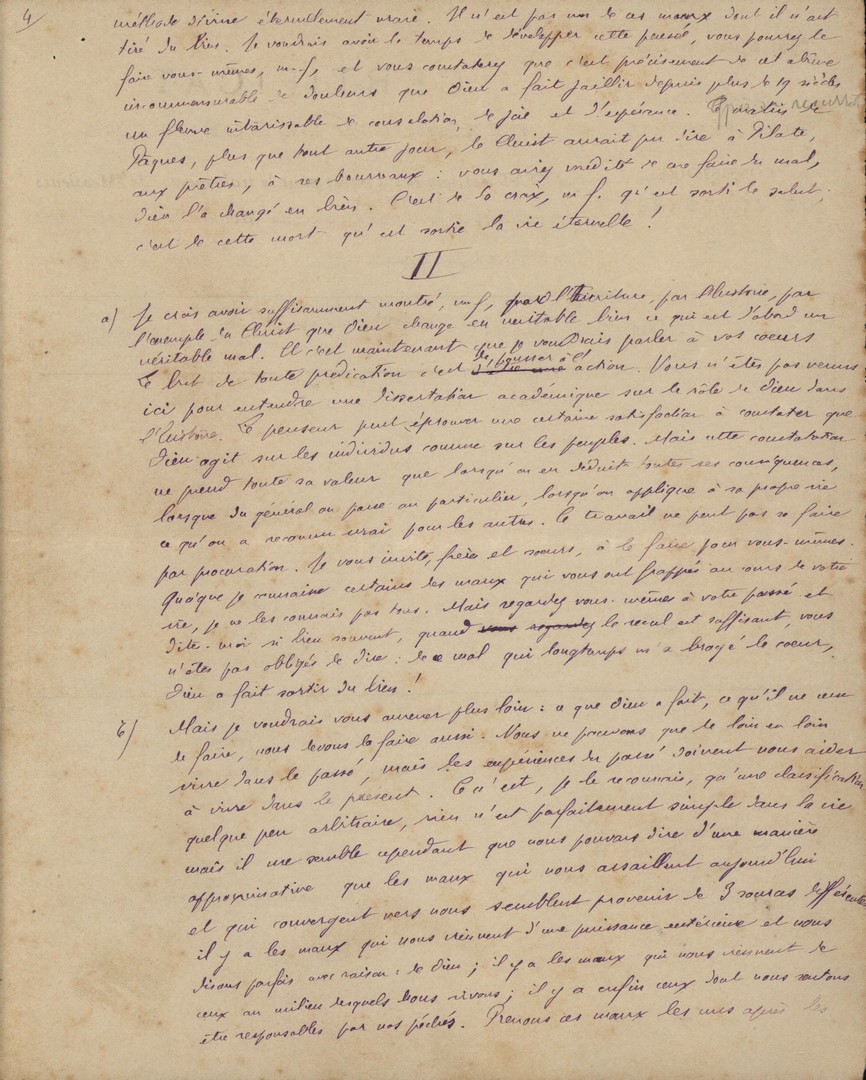 4/
méthode divine éternellement vraie. Il n'est pas un de ces maux dont il n'ait
tiré du bien. Je voudrais avoir le temps de développer cette pensée, vous pourrez le
faire vous-mêmes, m. f., et vous constaterez que c'est précisément de cet abîme
incommensurable de douleurs que Dieu a fait jaillir depuis plus de 19 siècles
un fleuve intarissable de consolation, de joie et d'espérance. Le matin de
Pâques, plus que tout autre jour, le Christ aurait pu dire à Pilate,
aux prêtres, à ses bourreaux : vous aviez médité de me faire du mal,
Dieu l'a changé en bien. C'est de la croix, m. f. qu'est sorti le salut,
c'est de cette mort qu'est sortie la vie éternelle !
II
a) Je crois avoir suffisamment montré, m. f., par l'Ecriture, par l'histoire, par
l'exemple du Christ que Dieu change en véritable bien ce qui est d'abord un
véritable mal. Et c'est maintenant que je voudrais parler à vos coeurs
Le but de toute prédication c'est de pousser à l'action. Vous n'êtes pas venus
ici pour entendre une dissertation académique sur le rôle de Dieu dans
l'histoire. Le penseur peut éprouver une certaine satisfaction à constater que
Dieu agit sur les individus comme sur les peuples. Mais cette constatation
ne prend toute sa valeur que lorsqu'on en déduit toutes ses conséquences,
lorsque du général on passe au particulier, lorsqu'on applique à sa propre vie
ce qu'on a reconnu vrai pour les autres. Ce travail ne peut pas se faire
par procuration. Je vous invite, frères et soeurs, à le faire pour vous-mêmes.
Quoique je connaisse certains des maux qui vous ont frappés au cours de votre
vie, je ne les connais pas tous. Mais regardez vous-mêmes à votre passé et
dites-moi si bien souvent, quand vous regardez le recul est suffisant, vous
n'êtes pas obligés de dire : de ce mal qui longtemps m'a broyé le coeur,
Dieu a fait sortir du bien !
b) Mais je voudrais vous amener plus loin : ce que Dieu a fait, ce qu'il ne cesse
de faire, nous devons le faire aussi. Nous ne pouvons que de loin en loin
vivre dans le passé, mais les expériences du passé doivent nous aider
à vivre dans le présent. Ce n'est, je le reconnais, qu'une classification
quelque peu arbitraire, rien n'est parfaitement simple dans la vie
mais il me semble cependant que nous pouvons dire d'une manière
approximative que les maux qui nous assaillent aujourd'hui
et qui convergent vers nous semblent provenir de 3 sources différentes
il y a les maux qui nous viennent d'une puissance extérieure et nous
disons parfois avec raison : de Dieu ; il y a les maux qui nous viennent de
ceux au milieu desquels nous vivons ; il y a enfin ceux dont nous sentons
être responsables par nos péchés. Prenons ces maux les uns après les